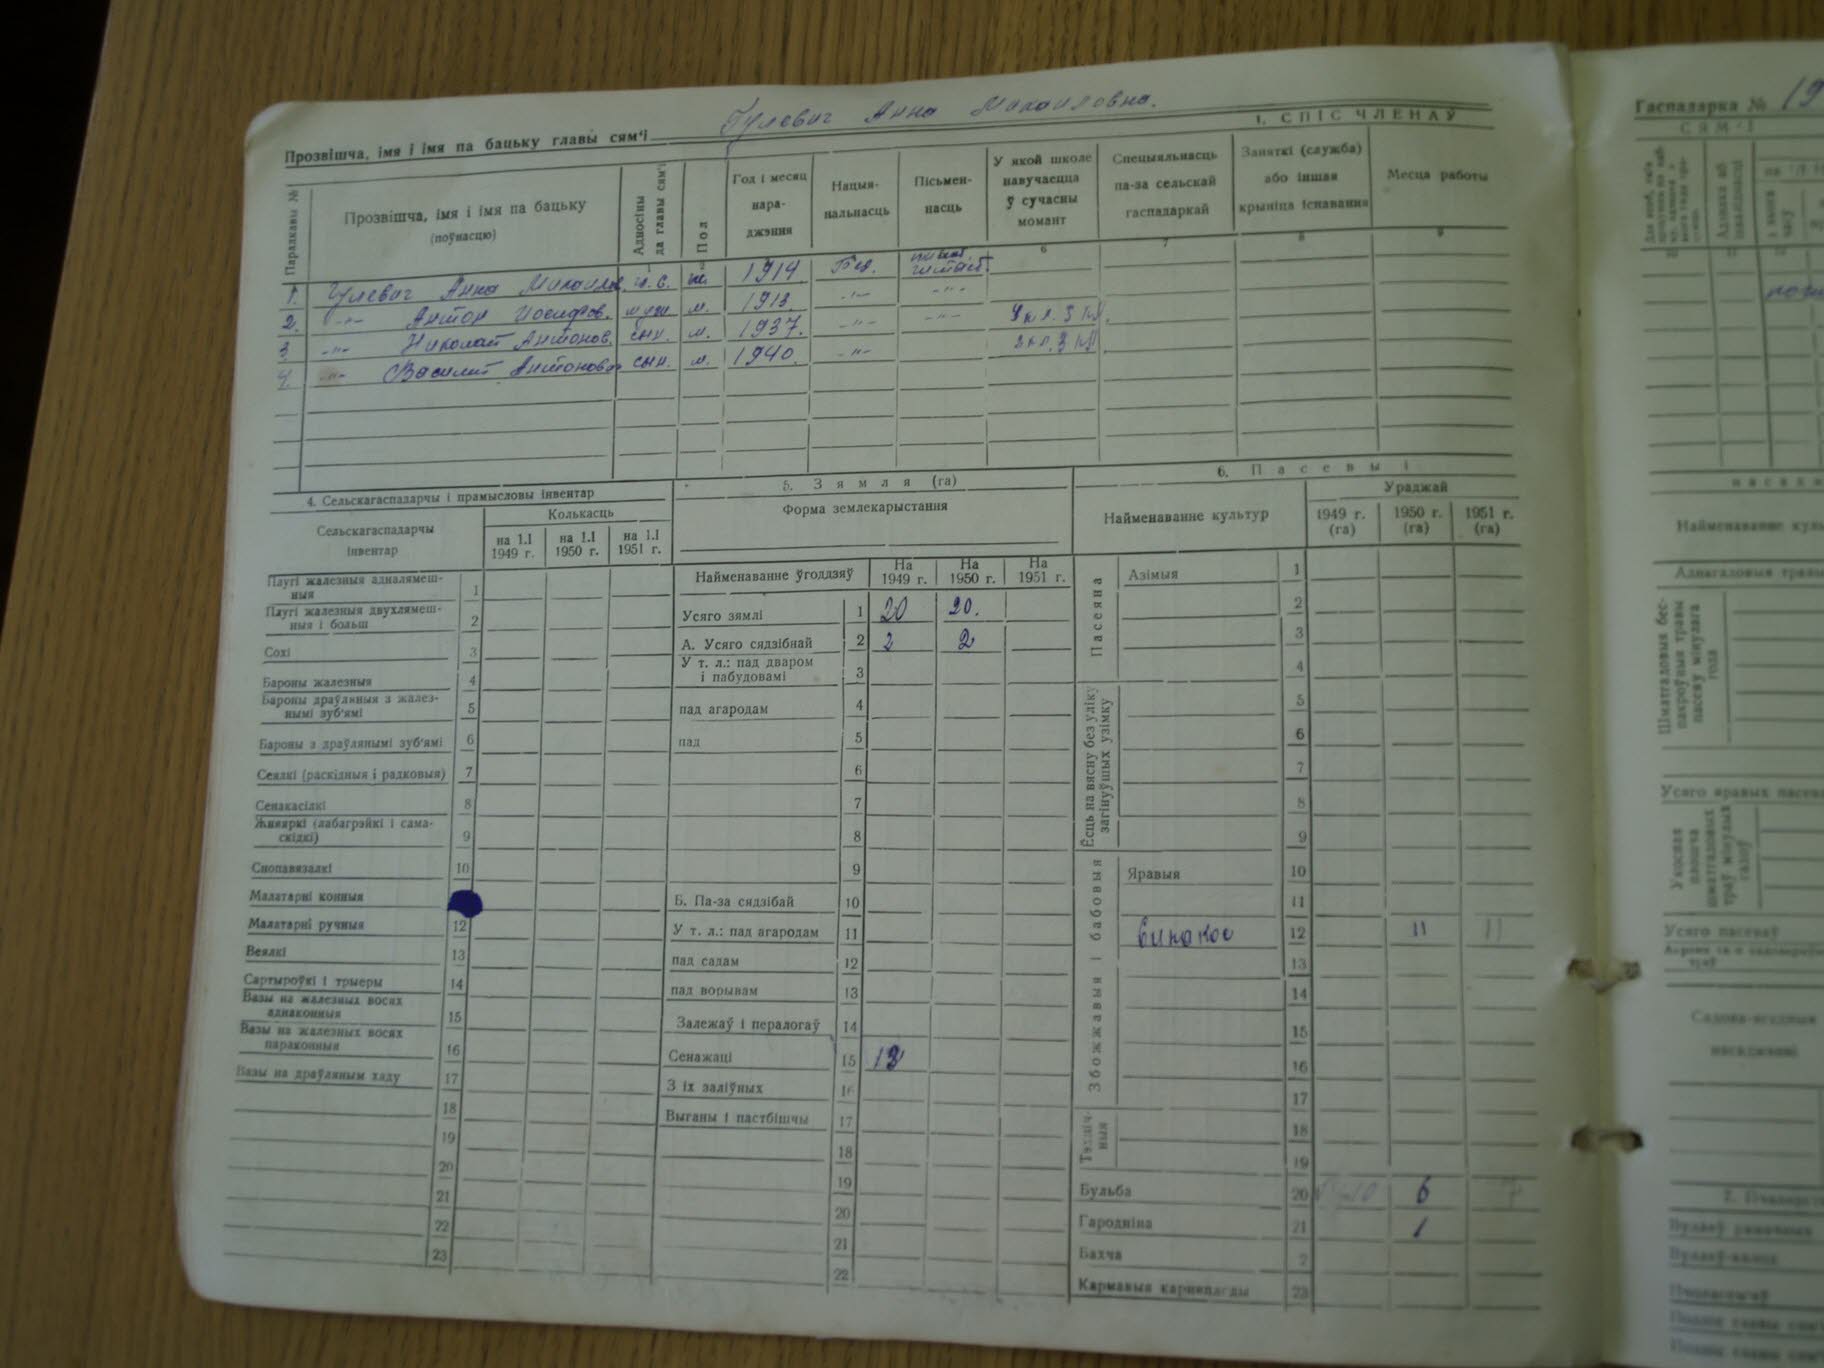 Прозвішча, імя і імя па бацьку главы сям'і Гулевич Анна Михайловна.
1. СПІС ЧЛЕНАЎ
Гаспадарка № 19
СЯМ'І
Парадкавы №
Прозвішча, імя і імя па бацьку (поўнасцю)
Адносіны да главы сям'і
Пол
Год і месяц нараджэння
Нацыянальнасць
Пісьменнасць
У якой школе навучаецца ў сучасны момант
Спецыяльнасць па-за сельскай гаспадаркай
Заняткі (служба) або іншая крыніца існавання
Месца работы
6 7 8 9
1. Гулевич Анна Михайлов. ж. 1914 Бел.
2. -"- Антон Иосифов. муж м. 1913. -"- -"-
3 -"- Николай Антонов. сын. м. 1937. -"- 4 кл. 3 кл.
4. -"- Василий Антонов. сын. м. 1940. -"- 2 кл. 3 кл
4. Сельскагаспадарчы і прамысловы інвентар
Сельскагаспадарчы інвентар
Колькасць
на 1.I 1949 г. на 1.I 1950 г. на 1.I 1951 г.
Плугі жалезныя адналямешныя 1
Плугі жалезныя двухлямешныя і больш 2
Сохі 3
Бароны жалезныя 4
Бароны драўляныя з жалезнымі зуб'ямі 5
Бароны з драўлянымі зуб'ямі 6
Сеялкі (раскідныя і радковыя) 7
Сенакасілкі 8
Жняяркі (лабагрэйкі і самаскідкі) 9
Снопавязалкі 10
Малатарні конныя
Малатарні ручныя 12
Веялкі 13
Сартыроўкі і трыеры 14
Вазы на жалезных восях аднаконныя 15
Вазы на жалезных восях параконныя 16
Вазы на драўляным хаду 17
18
19
20
21
22
23
5. Зямля (га)
Форма землекарыстання
Найменаванне ўгоддзяў
На 1949 г. На 1950 г. На 1951 г.
Усяго зямлі 1 20 20.
А. Усяго сядзібнай 2 2 2
У т. л.: пад дваром і пабудовамі 3
пад агародам 4
пад 5
6
7
8
9
Б. Па-за сядзібай 10
У т. л.: пад агародам 11
пад садам 12
пад ворывам 13
Залежаў і пералогаў 14
Сенажаці 15
З іх заліўных 16
Выганы і пастбішчы 17
18
19
20
21
22
6. Пасевы і
Найменаванне культур
Ураджай
1949 г. (га) 1950 г. (га) 1951 г. (га)
Пасеяна
Азімыя 1
2
3
4
Ёсць на вясну без уліку загінуўшых узімку
5
6
7
8
9
Збожжавыя і бабовыя
Яравыя 10
11
12 11 11
13
14
15
16
17
Тэхнічныя
18
19
Бульба 20 6
Гародніна 21 1
Бахча 2
Кармавыя карняплоды 23
насаж
Найменаванне куль
Аднагадовыя травы
Шматгадовыя беспакроўныя травы пасеву мінулага года
Усяго яравых пасев
Укосная плошча шматгадовых траў мінулых гадоў
Усяго пасеваў
Садова-ягадныя насаджэнні